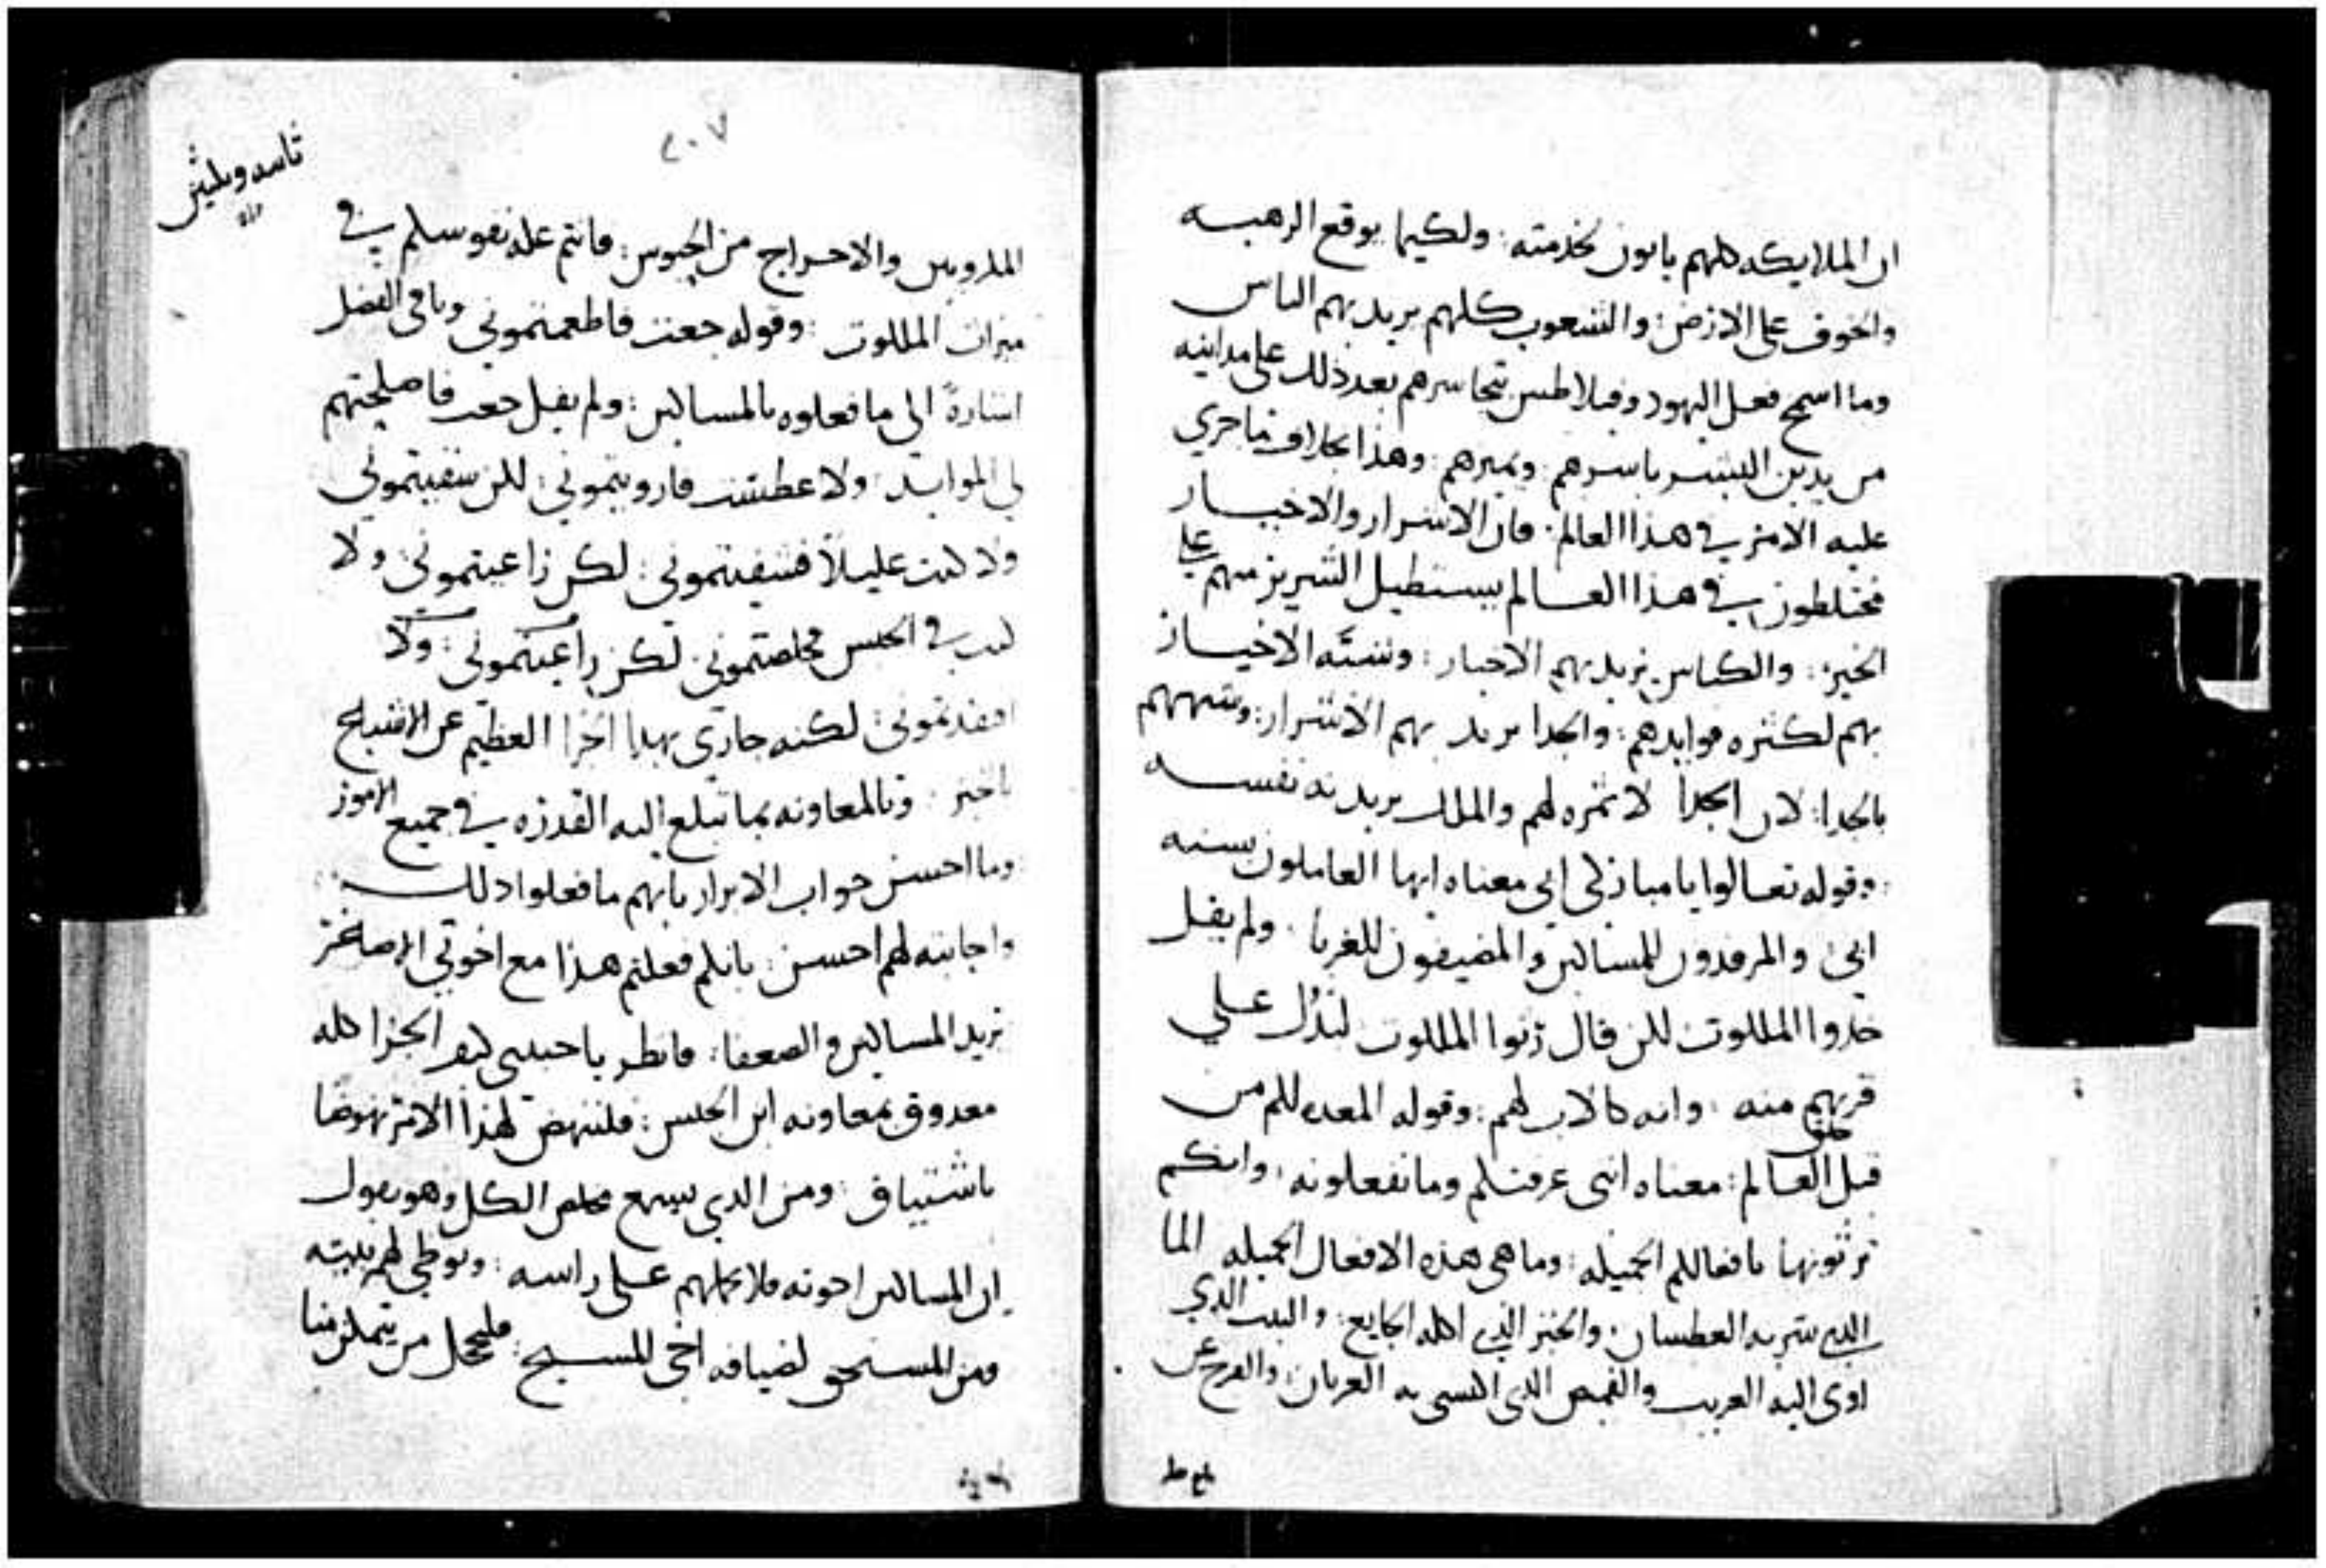 ان الملايكه كلهم ياتون لخدمته: ولكيما يوقع الرهبه
والخوف على الارض: والشعوب كلهم يريد بهم الناس
وما اسمج فعل اليهود وفيلاطس تجاسرهم بعد ذلك على مداينه
من يدين البشر باسرهم: ويميزهم: وهذا بخلاف ما جري
عليه الامر في هذا العالم: فان الاشرار والاخيار
مختلطون في هذا العالم يستطيل الشرير منهم على
الخير: والكباش يريد بهم الاخيار: وشبه الاخيار
بهم لكثره فوايدهم: والجدا يريد بهم الاشرار: وشبههم
بالجدا: لان الجدا لا ثمره لهم والملك يريد به نفسه
: وقوله تعالوا يا مباركي ابي معناه ايها العاملون سنه
ابي والمرفدون للمساكين والمضيفون للغربا: ولم يقل
خدوا الملكوت لكن قال رثوا الملكوت ليدل علي
قربهم منه: وانه كالاب لهم: وقوله المعده لكم من
قبل خلق العالم: معناه انني عرفتكم وما تفعلونه: وانكم
ترثونها بافعالكم الجميله: وما هي هذه الافعال الجميله الما
الذي شربه العطشان: والخبز الذي اكله الجايع: والبيت الذي
اوى اليه الغريب والقميص الذي اكتسى به العريان: والفرج عن
بلغ
٢٠٧
المكروبين والاخراج من الحبوس: فانتم عله نفوسكم في
ميراث الملكوت: وقوله جعت فاطعمتموني وباقي الفصل
اشارةً الى ما فعلوه بالمساكين: ولم يقل جعت فاصلحتم
لي الموايد: ولا عطشت فارويتموني: لكن سقيتموني
ولا كنت عليلاً فشفيتموني: لكن راعيتموني: ولا
كنت في الحبس فخلصتموني: لكن راعيتموني: ولا
افقدتموني: لكنه جازى بهدا الجزا العظيم عن الاشباع
بالخبز: وبالمعاونه بما تبلغ اليه القدره في جميع الامور
وما احسن جواب الابرار بانهم ما فعلوا ذلك
واجابته لهم احسن: بانكم فعلتم هذا مع اخوتي الاصاغر
يريد المساكين والضعفا: فانظر يا حبيبي كيف الجزا كله
معدوق بمعاونه ابن الجنس: فلننهض لهذا الامر نهوضا
باشتياق: ومن الذي يسمع مخلص الكل وهو يقول
ان المساكين اخوته فلا يحملهم على راسه: ويوطي لهم بيته
ومن المستحق لضيافه اخي المسيح: فليحمل من يتمكن منا